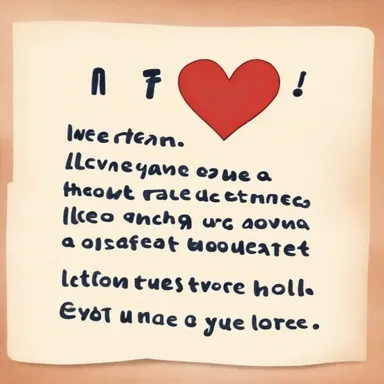 n F !
Iveertean.
Ilcvneyane oə ue a
theowt rale de ctnnecs
Ikeo anchg urc aovna
a olsafeat woouearet
Ictfon tues tvore holl.
Eyот u nae a yue loree.